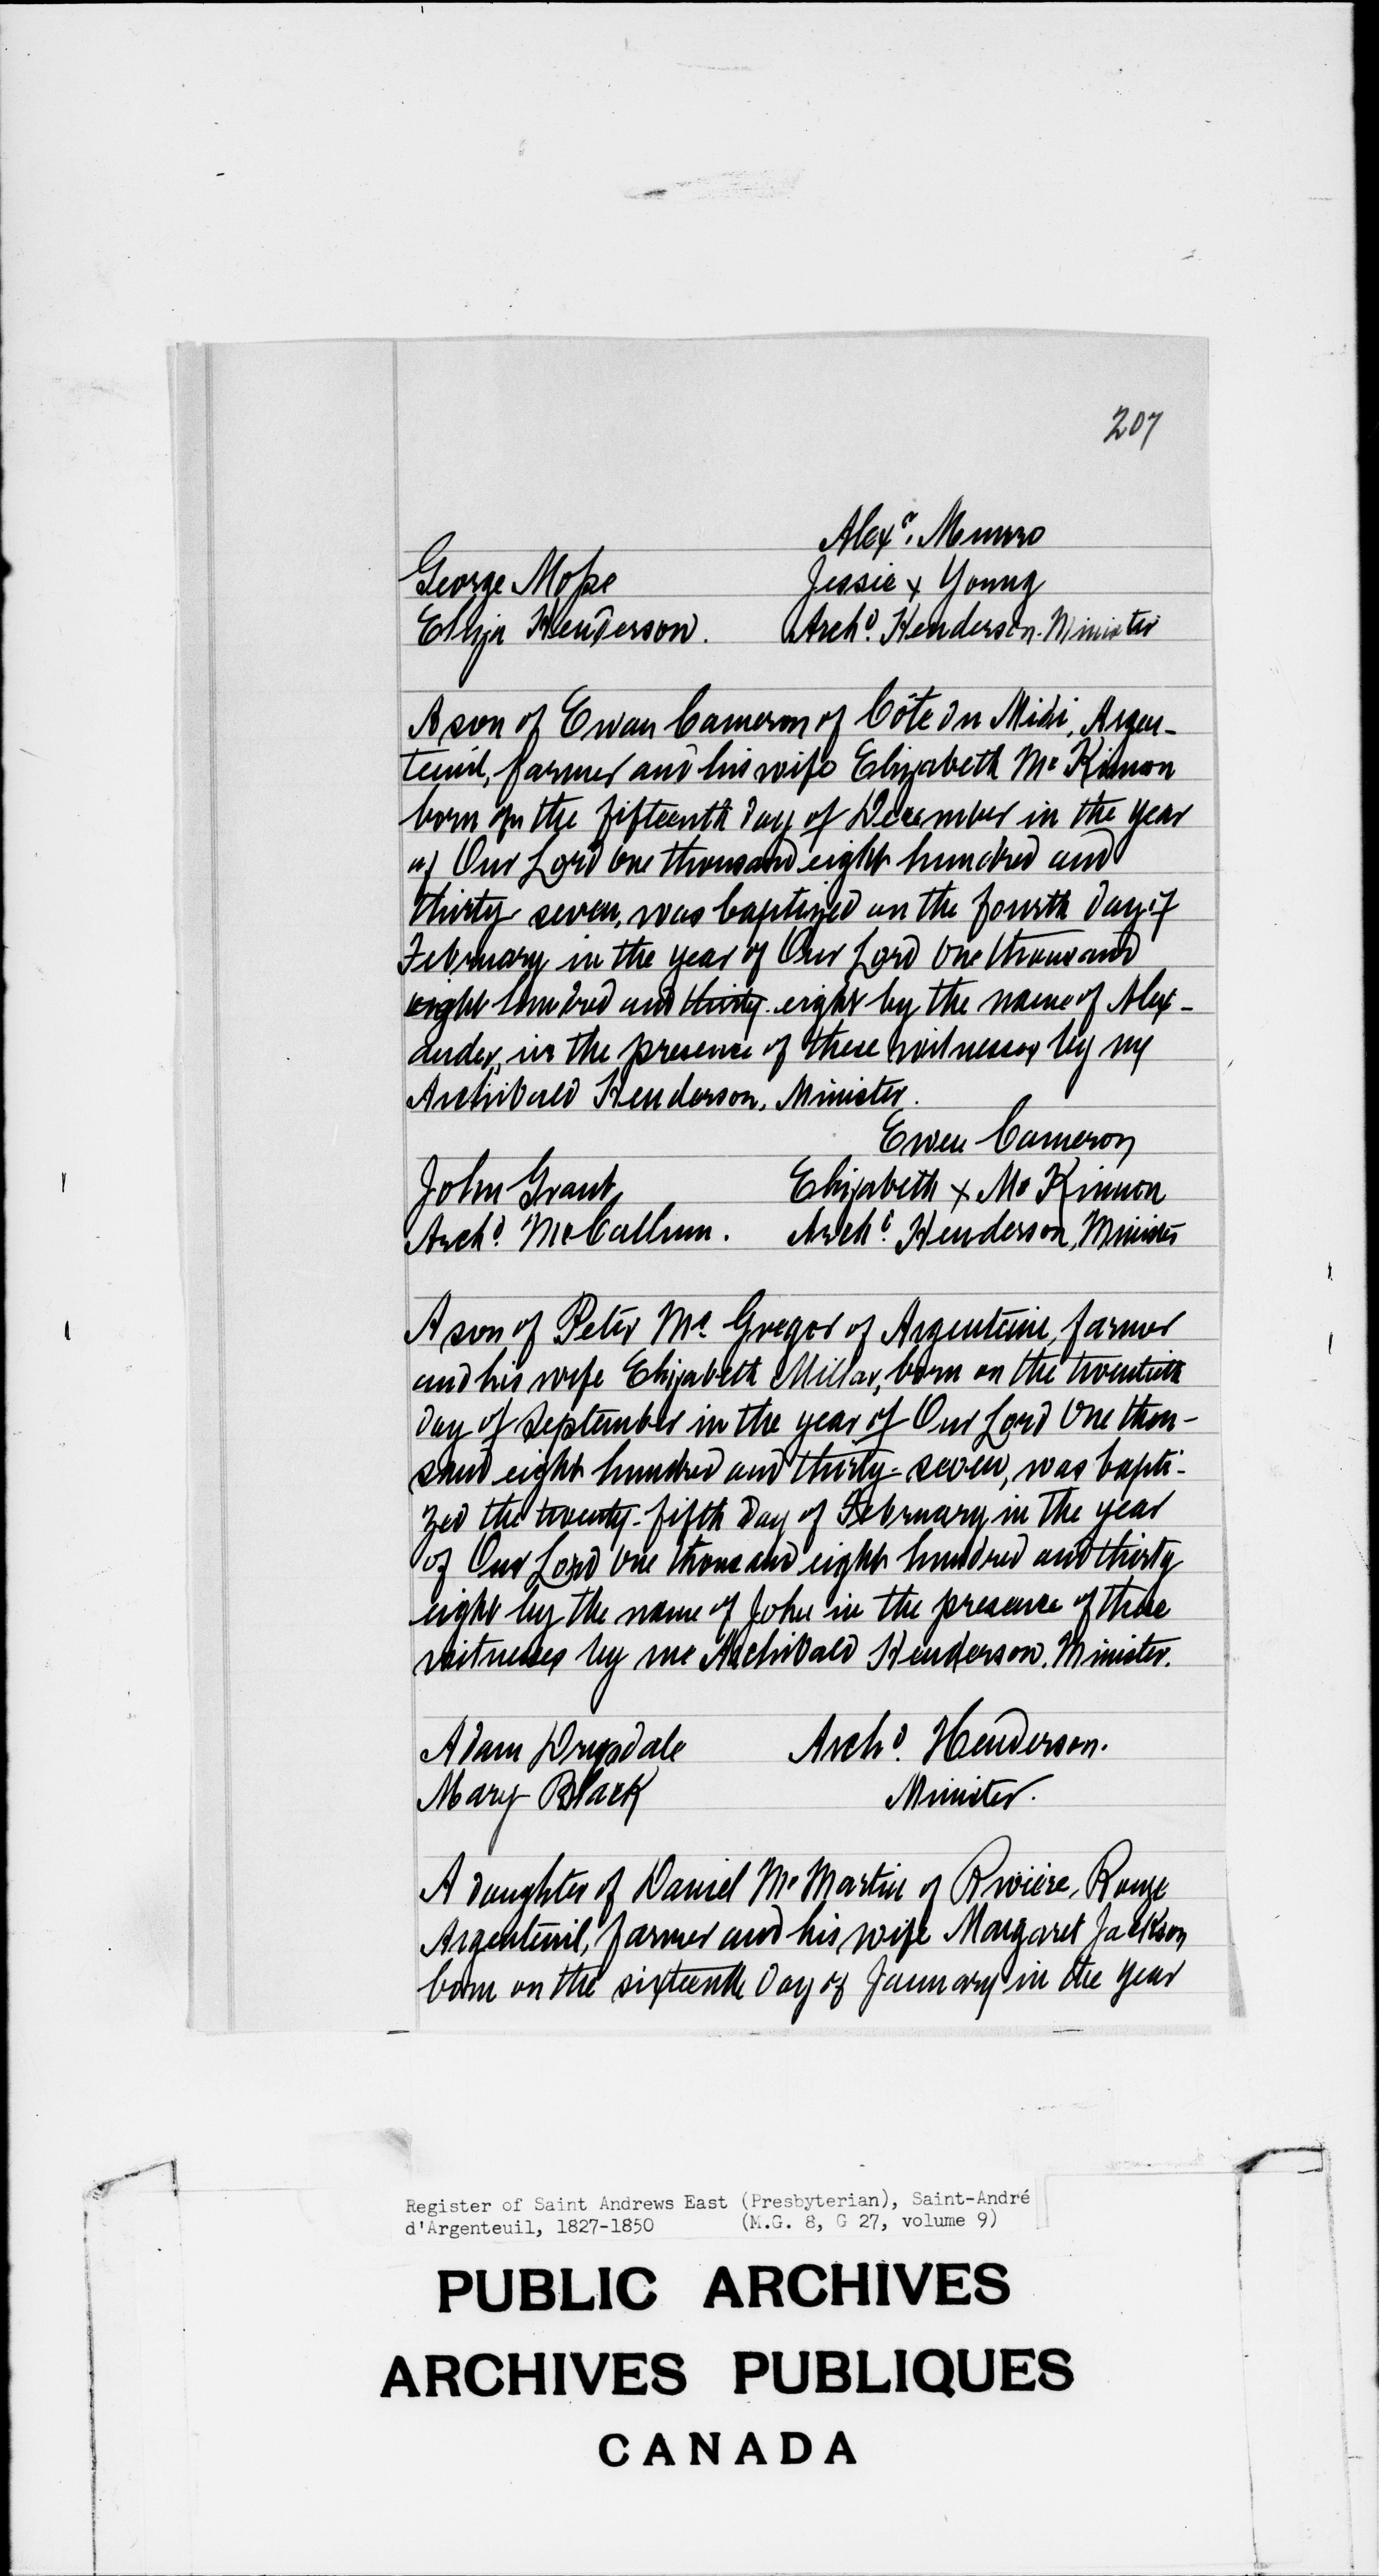 207
Alexr. Munro
George Moſse Jessie x Young
Eliza Henderson. Archd. Henderson. Minister
A son of Ewan Cameron of Côte du Midi, Argen-
teuil, farmer and his wife Elizabeth Mc Kinnon
born on the fifteenth day of December in the year
of Our Lord one thousand eight hundred and
thirty seven, was baptized on the fourth day of
February in the year of Our Lord One thousand
eight hundred and thirty-eight by the name of Alex-
ander, in the presence of these witnesses by me
Archibald Henderson, Minister.
Ewen Cameron
John Grant Elizabeth x Mc Kinnon
Archd. McCallum. Archd. Henderson, Minister
A son of Peter Mc. Gregor of Argenteuil, farmer
and his wife Elizabeth Millar, born on the twentieth
day of September in the year of Our Lord One thou-
sand eight hundred and thirty-seven, was bapti-
zed the twenty-fifth day of February in the year
of Our Lord one thousand eight hundred and thirty
eight by the name of John in the presence of these
witnesses by me Archibald Henderson. Minister.
Adam Drysdale Archd. Henderson.
Mary Black Minister.
A daughter of Daniel Mc Martin of Rivière, Rouge
Argenteuil, farmer and his wife Margaret Jackson
born on the sixteenth day of January in the year
Register of Saint Andrews East (Presbyterian), Saint-André
d'Argenteuil, 1827-1850 (M.G. 8, G 27, volume 9)
PUBLIC ARCHIVES
ARCHIVES PUBLIQUES
CANADA